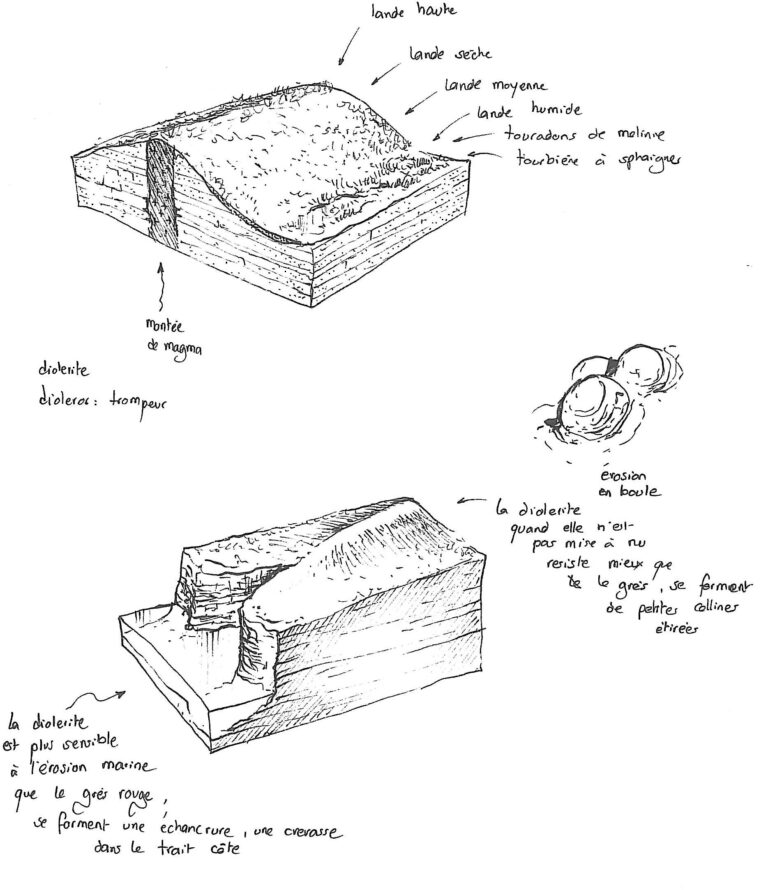 lande haute
lande sèche
lande moyenne
lande humide
touradons de molinie
tourbière à sphaignes
montée
de magma
diolerite
dioleros : trompeur
érosion
en boule
la diolerite
quand elle n'est
pas mise à nu
resiste mieux que
le grès, se forment
de petites collines
étirées
la diolerite
est plus sensible
à l'érosion marine
que le grés rouge,
se forment une échancrure, une crevasse
dans le trait côte